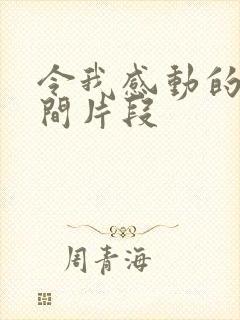 令我感動的
間片段
周青海